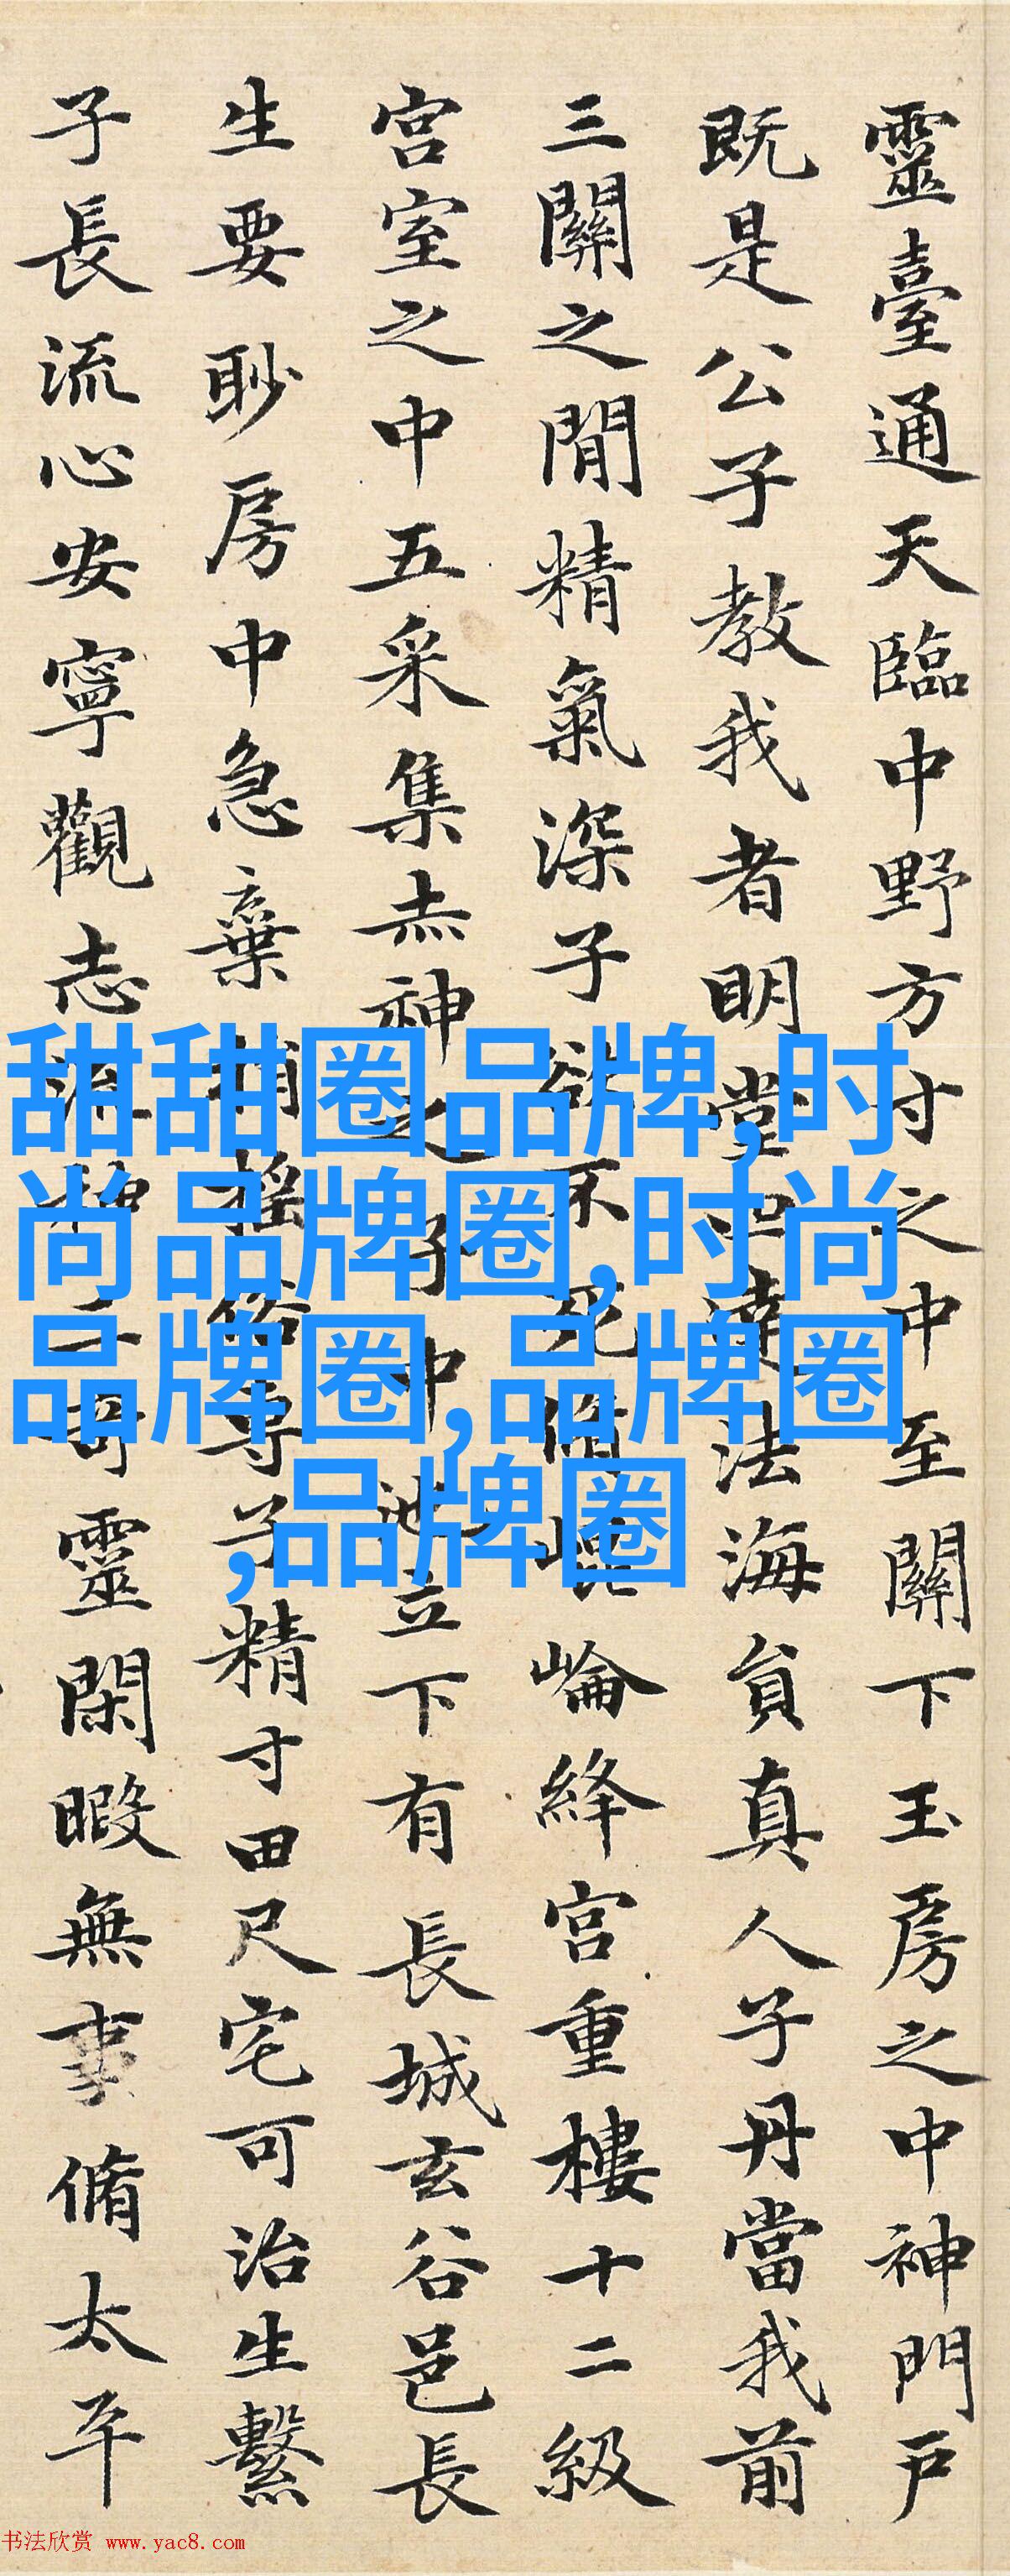 靈臺通天臨中野方寸之中至關下玉房之中神門戶
既是公子教我者明堂四達法海負真人子丹當我前
三關之間精氣深子欲不死脩崐崘絳宮重樓十二級
宮室之中五采集赤神之子中池立下有長城玄谷邑長
生要眇房中急棄捐搖俗專子精寸田尺宅可治生繫
子長流心安寧觀志流神三奇靈閑暇無事脩太平
甜甜圈品牌,时
尚品牌圈,时尚
品牌圈,品牌圈
,品牌圈
书法欣赏 www.yac8.com